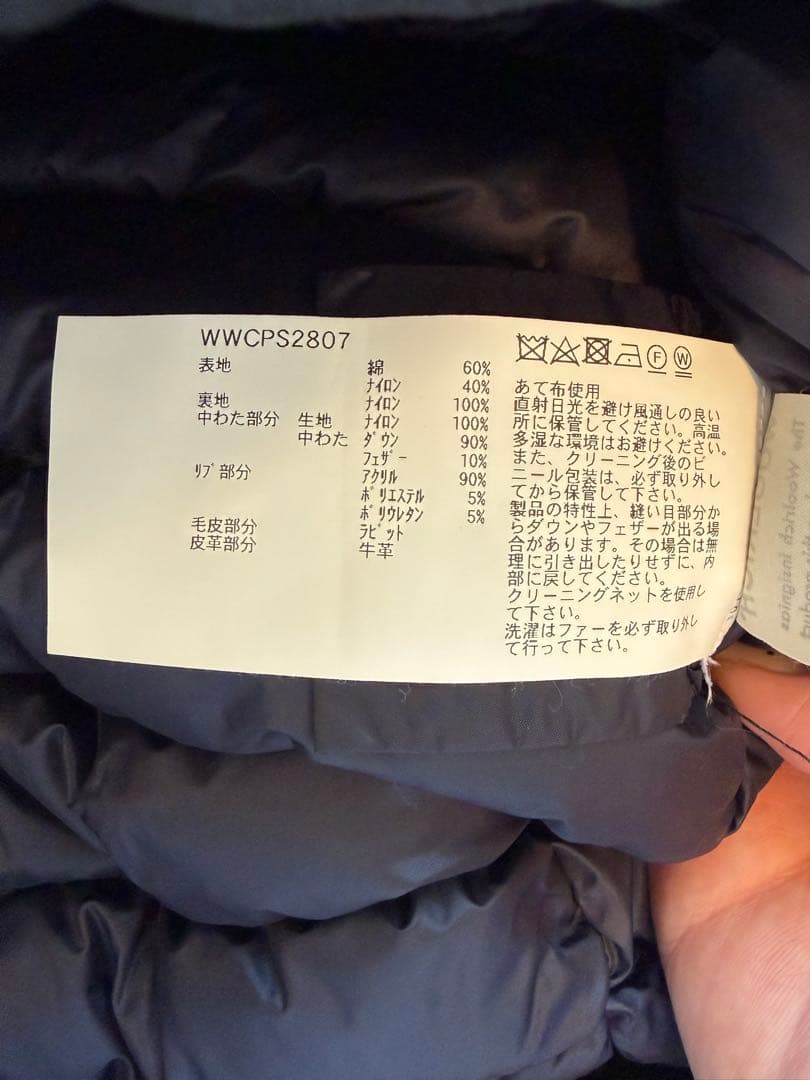 WWCPS2807
表地 綿 60%
ナイロン 40%
裏地 ナイロン 100%
中わた部分 生地 ナイロン 100%
中わた ダウン 90%
フェザー 10%
リブ部分 アクリル 90%
ポリエステル 5%
ポリウレタン 5%
毛皮部分 ラビット
皮革部分 牛革
F W
あて布使用
直射日光を避け風通しの良い
所に保管してください。高温
多湿な環境はお避けください。
また、クリーニング後のビ
ニール包装は、必ず取り外し
てから保管して下さい。
製品の特性上、縫い目部分か
らダウンやフェザーが出る場
合があります。その場合は無
理に引き出したりせずに、内
部に戻してください。
クリーニングネットを使用し
て下さい。
洗濯はファーを必ず取り外し
て行って下さい。
The Woolrich